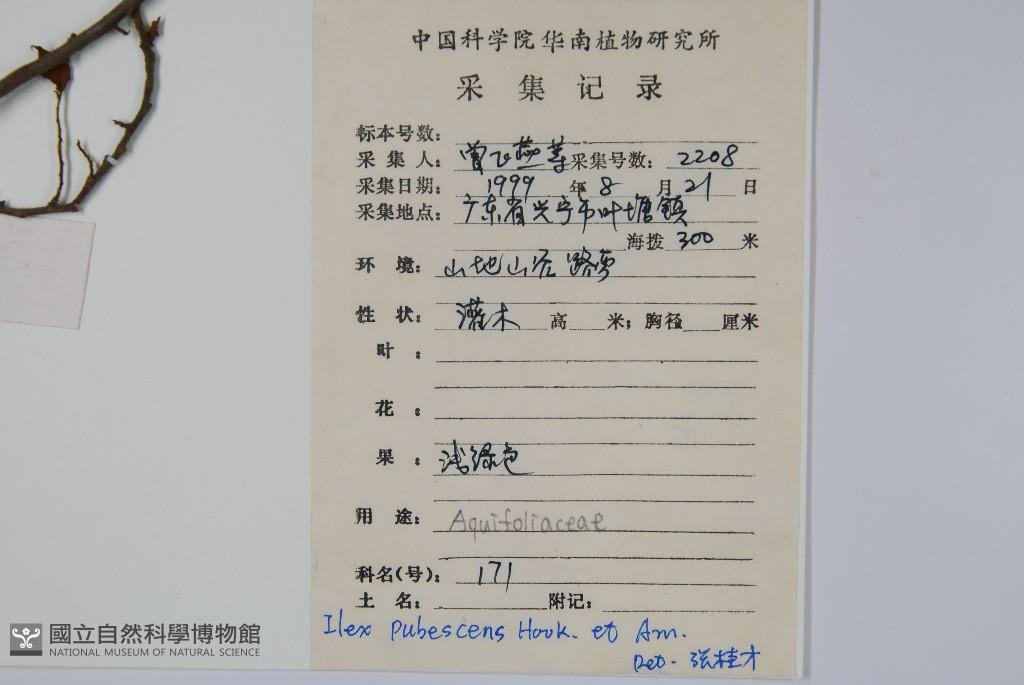 中国科学院华南植物研究所
采集记录
标本号数：
采集人：曾飞燕等 采集号数：2208
采集日期：1999年8月21日
采集地点：广东省兴宁市叶塘镇
海拨 300 米
环境：山地山谷路旁
性状：灌木 高 米；胸径 厘米
叶：
花：
果：浅绿色
用途：Aquifoliaceae
科名(号)：171
土名： 附记：
Ilex pubescens Hook. et Arn.
Det. 张桂才
國立自然科學博物館
NATIONAL MUSEUM OF NATURAL SCIENCE